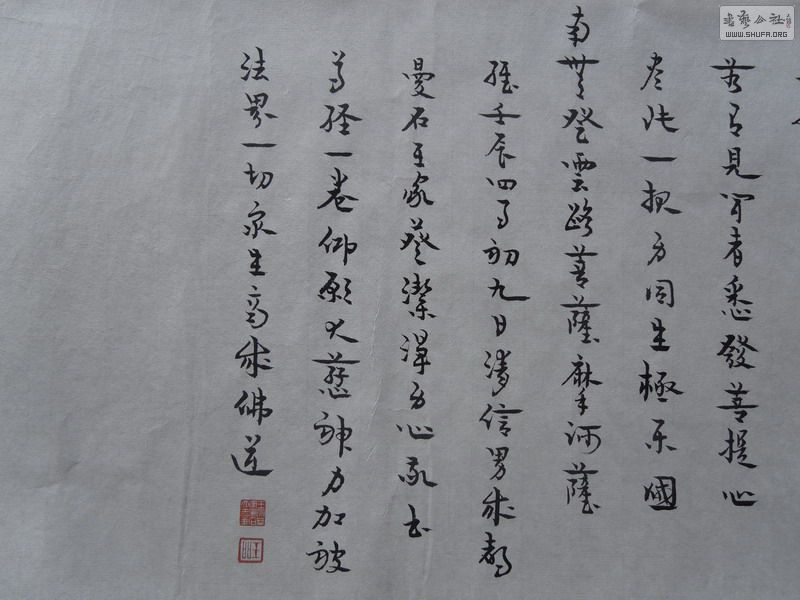 書藝公社
WWW.SHUFA.ORG
若有見聞者悉發菩提心
盡此一報身同生極樂國
南無登雲路菩薩摩訶薩
維壬辰四月初九日清信男成都
曼石王家葵潔淨身心敬書
尊經一卷仰願大慈神力加被
法界一切众生齊成佛道